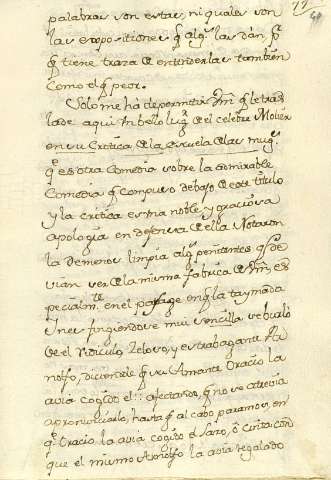 79
palabras son estas, ni quales son
las expositiones q̃ alg.s las dán p.r
q̃ tiene traza de entenderlas tambien
como el q̃ peor.
Solo me há de permitir Vm̃ q̃ le tras
lade aqui un bello lug.r de el celebre Molier
en su Critica de la Escuela de las mug.s
q.e es otra Comedia sobre la admirable
Comedia q̃ compuso debajo de este titulo
y la critica es una noble, y graciosa
apologia en defensa de ella Notaron
la de menos limpia alg.s penitantes q.e de
vian ser de la misma fabrica de Vm̃ es
pecialm.te en el passage en q̃ la taymada
Ynes fingiendose mui sencilla se burla
de el Ridiculo Zeloso, y estrabagante Ar
nolfo, diciendole q̃ su Amante Oracio la
avia cogido el :: afectando, q̃ no se atrevia
a pronunciarlo, hasta q̃ al cabo paramos, en
q.e Oracio la avia cogido el Lazo, ó cinta con
que el mismo Arnolfo la avia regalado